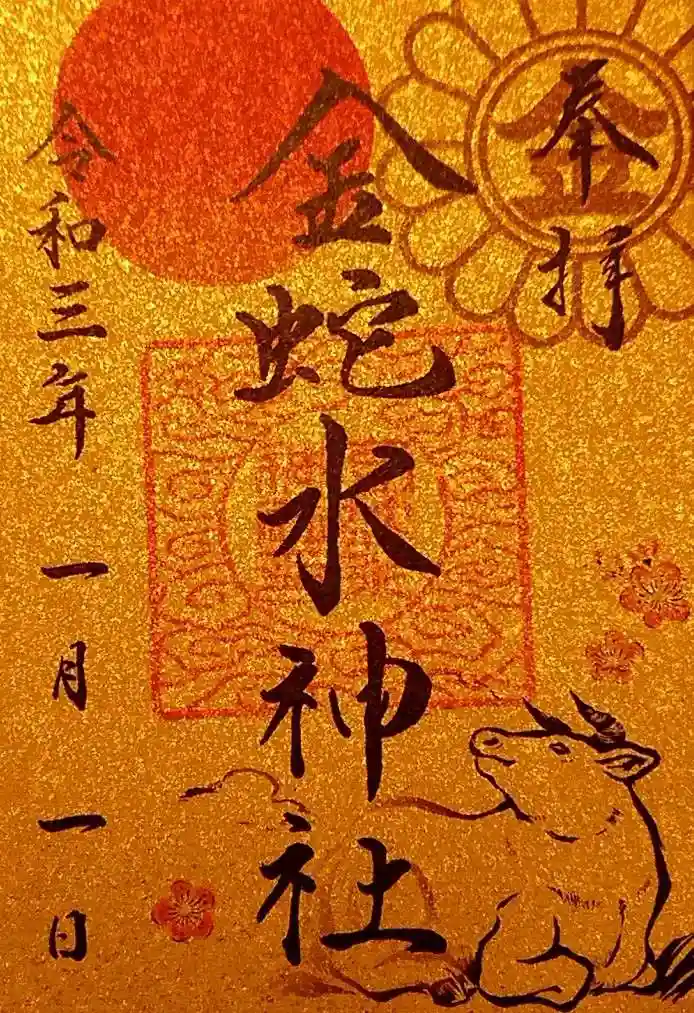 奉拝
金蛇水神社
令和三年一月一日